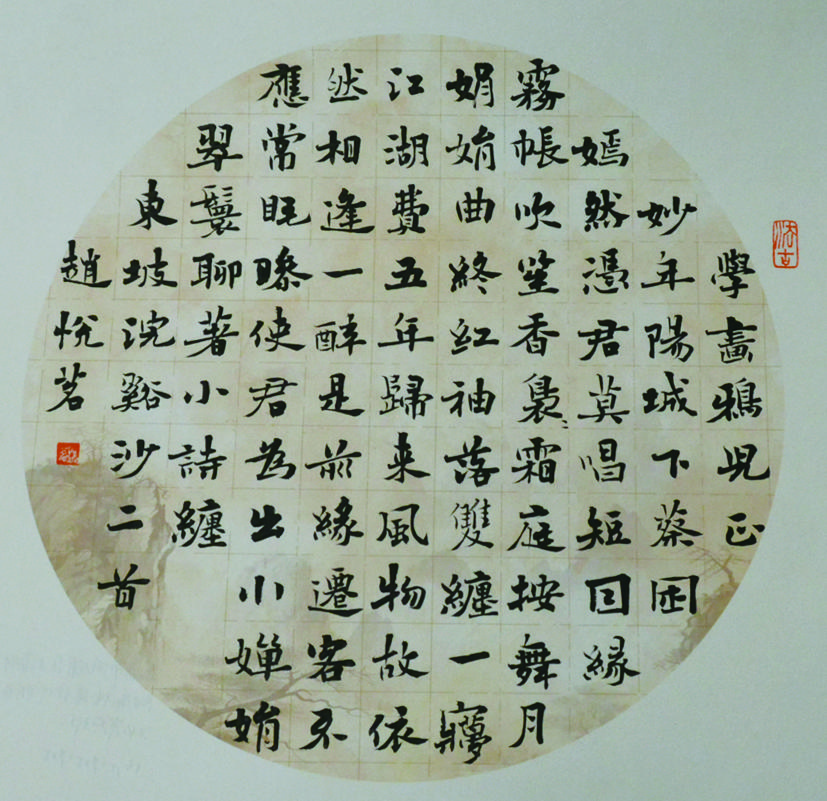 法古
學畫鴉児正
妙年陽城下蔡困
嫣然憑君莫唱短囙緣
霧帳吹笙香裊〻霜庭按舞月
娟娟曲終紅袖落雙纏一夢
江湖費五年歸来風物故依
然相逢一醉是前緣遷客不
應常眊矂使君為出小嬋娟
翠鬟聊著小詩纏
東坡浣谿沙二首
趙悅茗